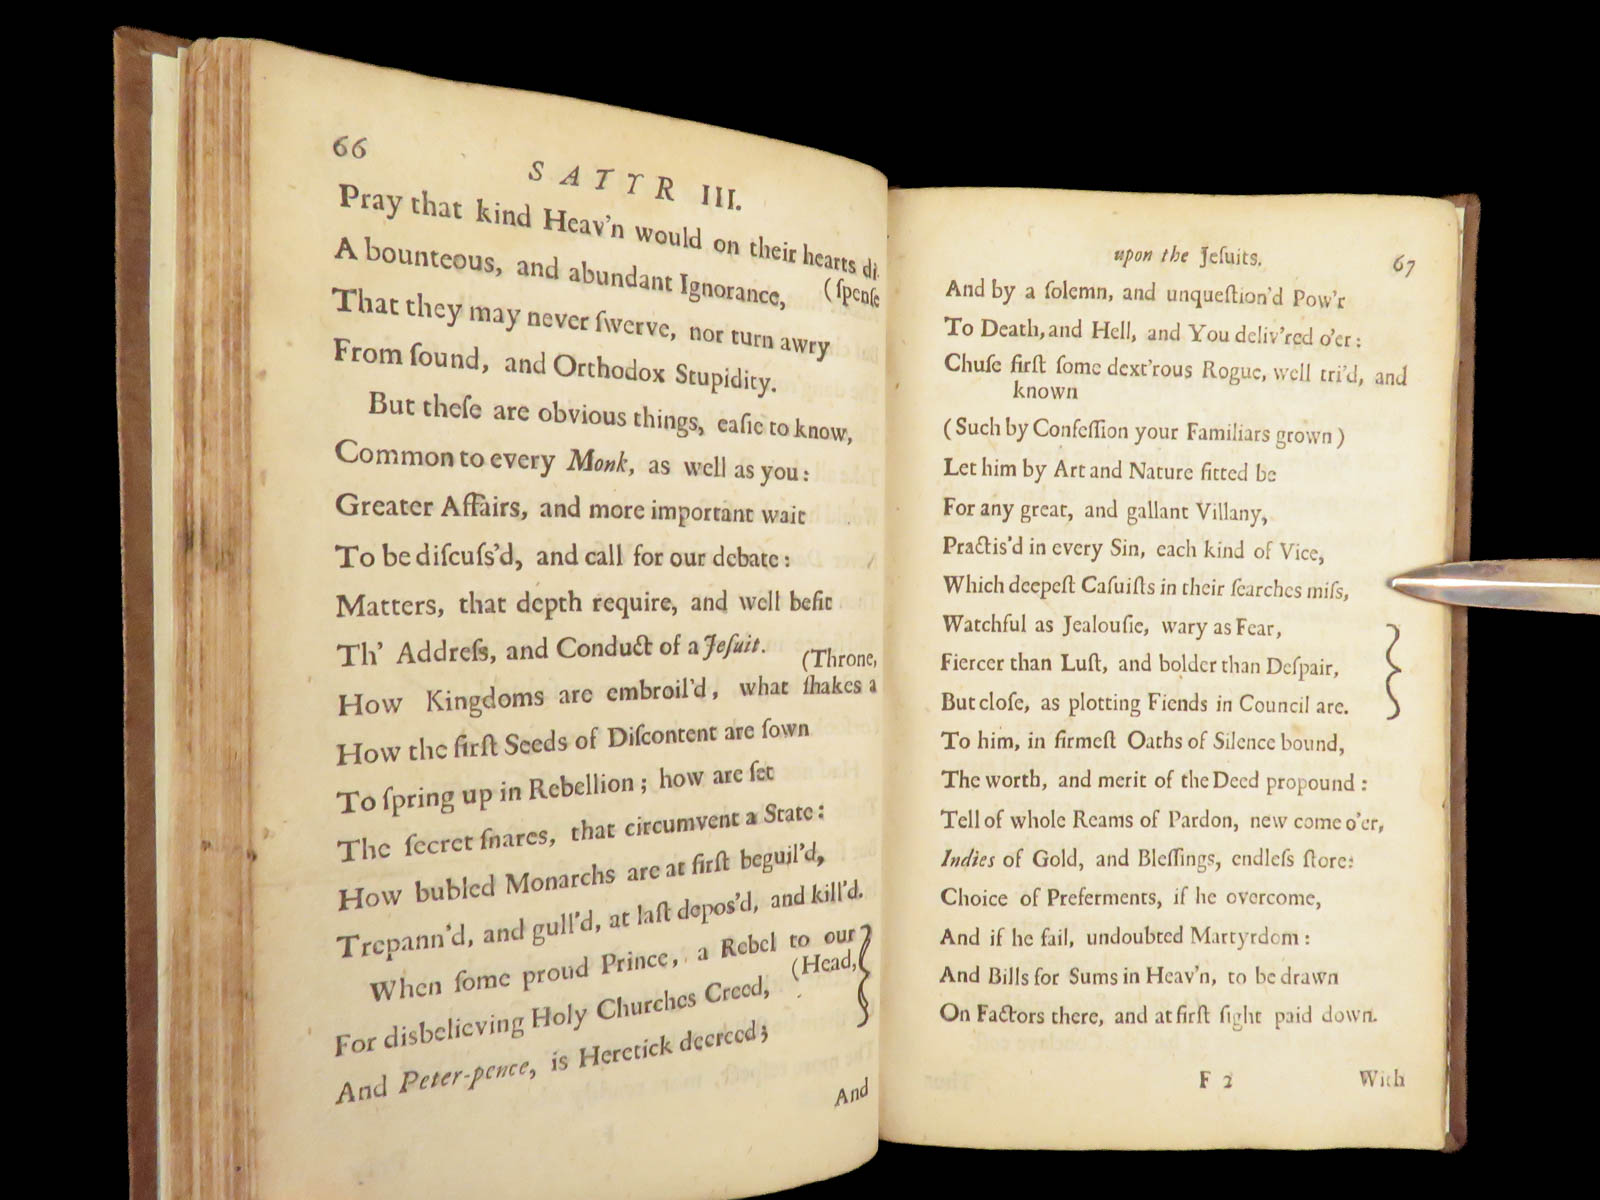 66
SATYR III.
Pray that kind Heav'n would on their hearts di-
A bounteous, and abundant Ignorance, (ſpenſe
That they may never ſwerve, nor turn awry
From ſound, and Orthodox Stupidity.
But theſe are obvious things, eaſie to know,
Common to every Monk, as well as you:
Greater Affairs, and more important wait
To be diſcuſs'd, and call for our debate:
Matters, that depth require, and well befit
Th' Addreſs, and Conduct of a Jeſuit. (Throne,
How Kingdoms are embroil'd, what ſhakes a
How the firſt Seeds of Diſcontent are ſown
To ſpring up in Rebellion; how are ſet
The ſecret ſnares, that circumvent a State:
How bubled Monarchs are at firſt beguil'd,
Trepann'd, and gull'd, at laſt depos'd, and kill'd.
When ſome proud Prince, a Rebel to our
For disbelieving Holy Churches Creed, (Head,
And Peter-pence, is Heretick decreed;
And
upon the Jeſuits. 67
And by a ſolemn, and unqueſtion'd Pow'r
To Death, and Hell, and You deliv'red o'er:
Chuſe firſt ſome dext'rous Rogue, well tri'd, and
known
(Such by Confeſſion your Familiars grown)
Let him by Art and Nature fitted be
For any great, and gallant Villany,
Practis'd in every Sin, each kind of Vice,
Which deepeſt Caſuiſts in their ſearches miſs,
Watchful as Jealouſie, wary as Fear,
Fiercer than Luſt, and bolder than Deſpair,
But cloſe, as plotting Fiends in Council are.
To him, in firmeſt Oaths of Silence bound,
The worth, and merit of the Deed propound:
Tell of whole Reams of Pardon, new come o'er,
Indies of Gold, and Bleſſings, endleſs ſtore:
Choice of Preferments, if he overcome,
And if he fail, undoubted Martyrdom:
And Bills for Sums in Heav'n, to be drawn
On Factors there, and at firſt ſight paid down.
F 2 With